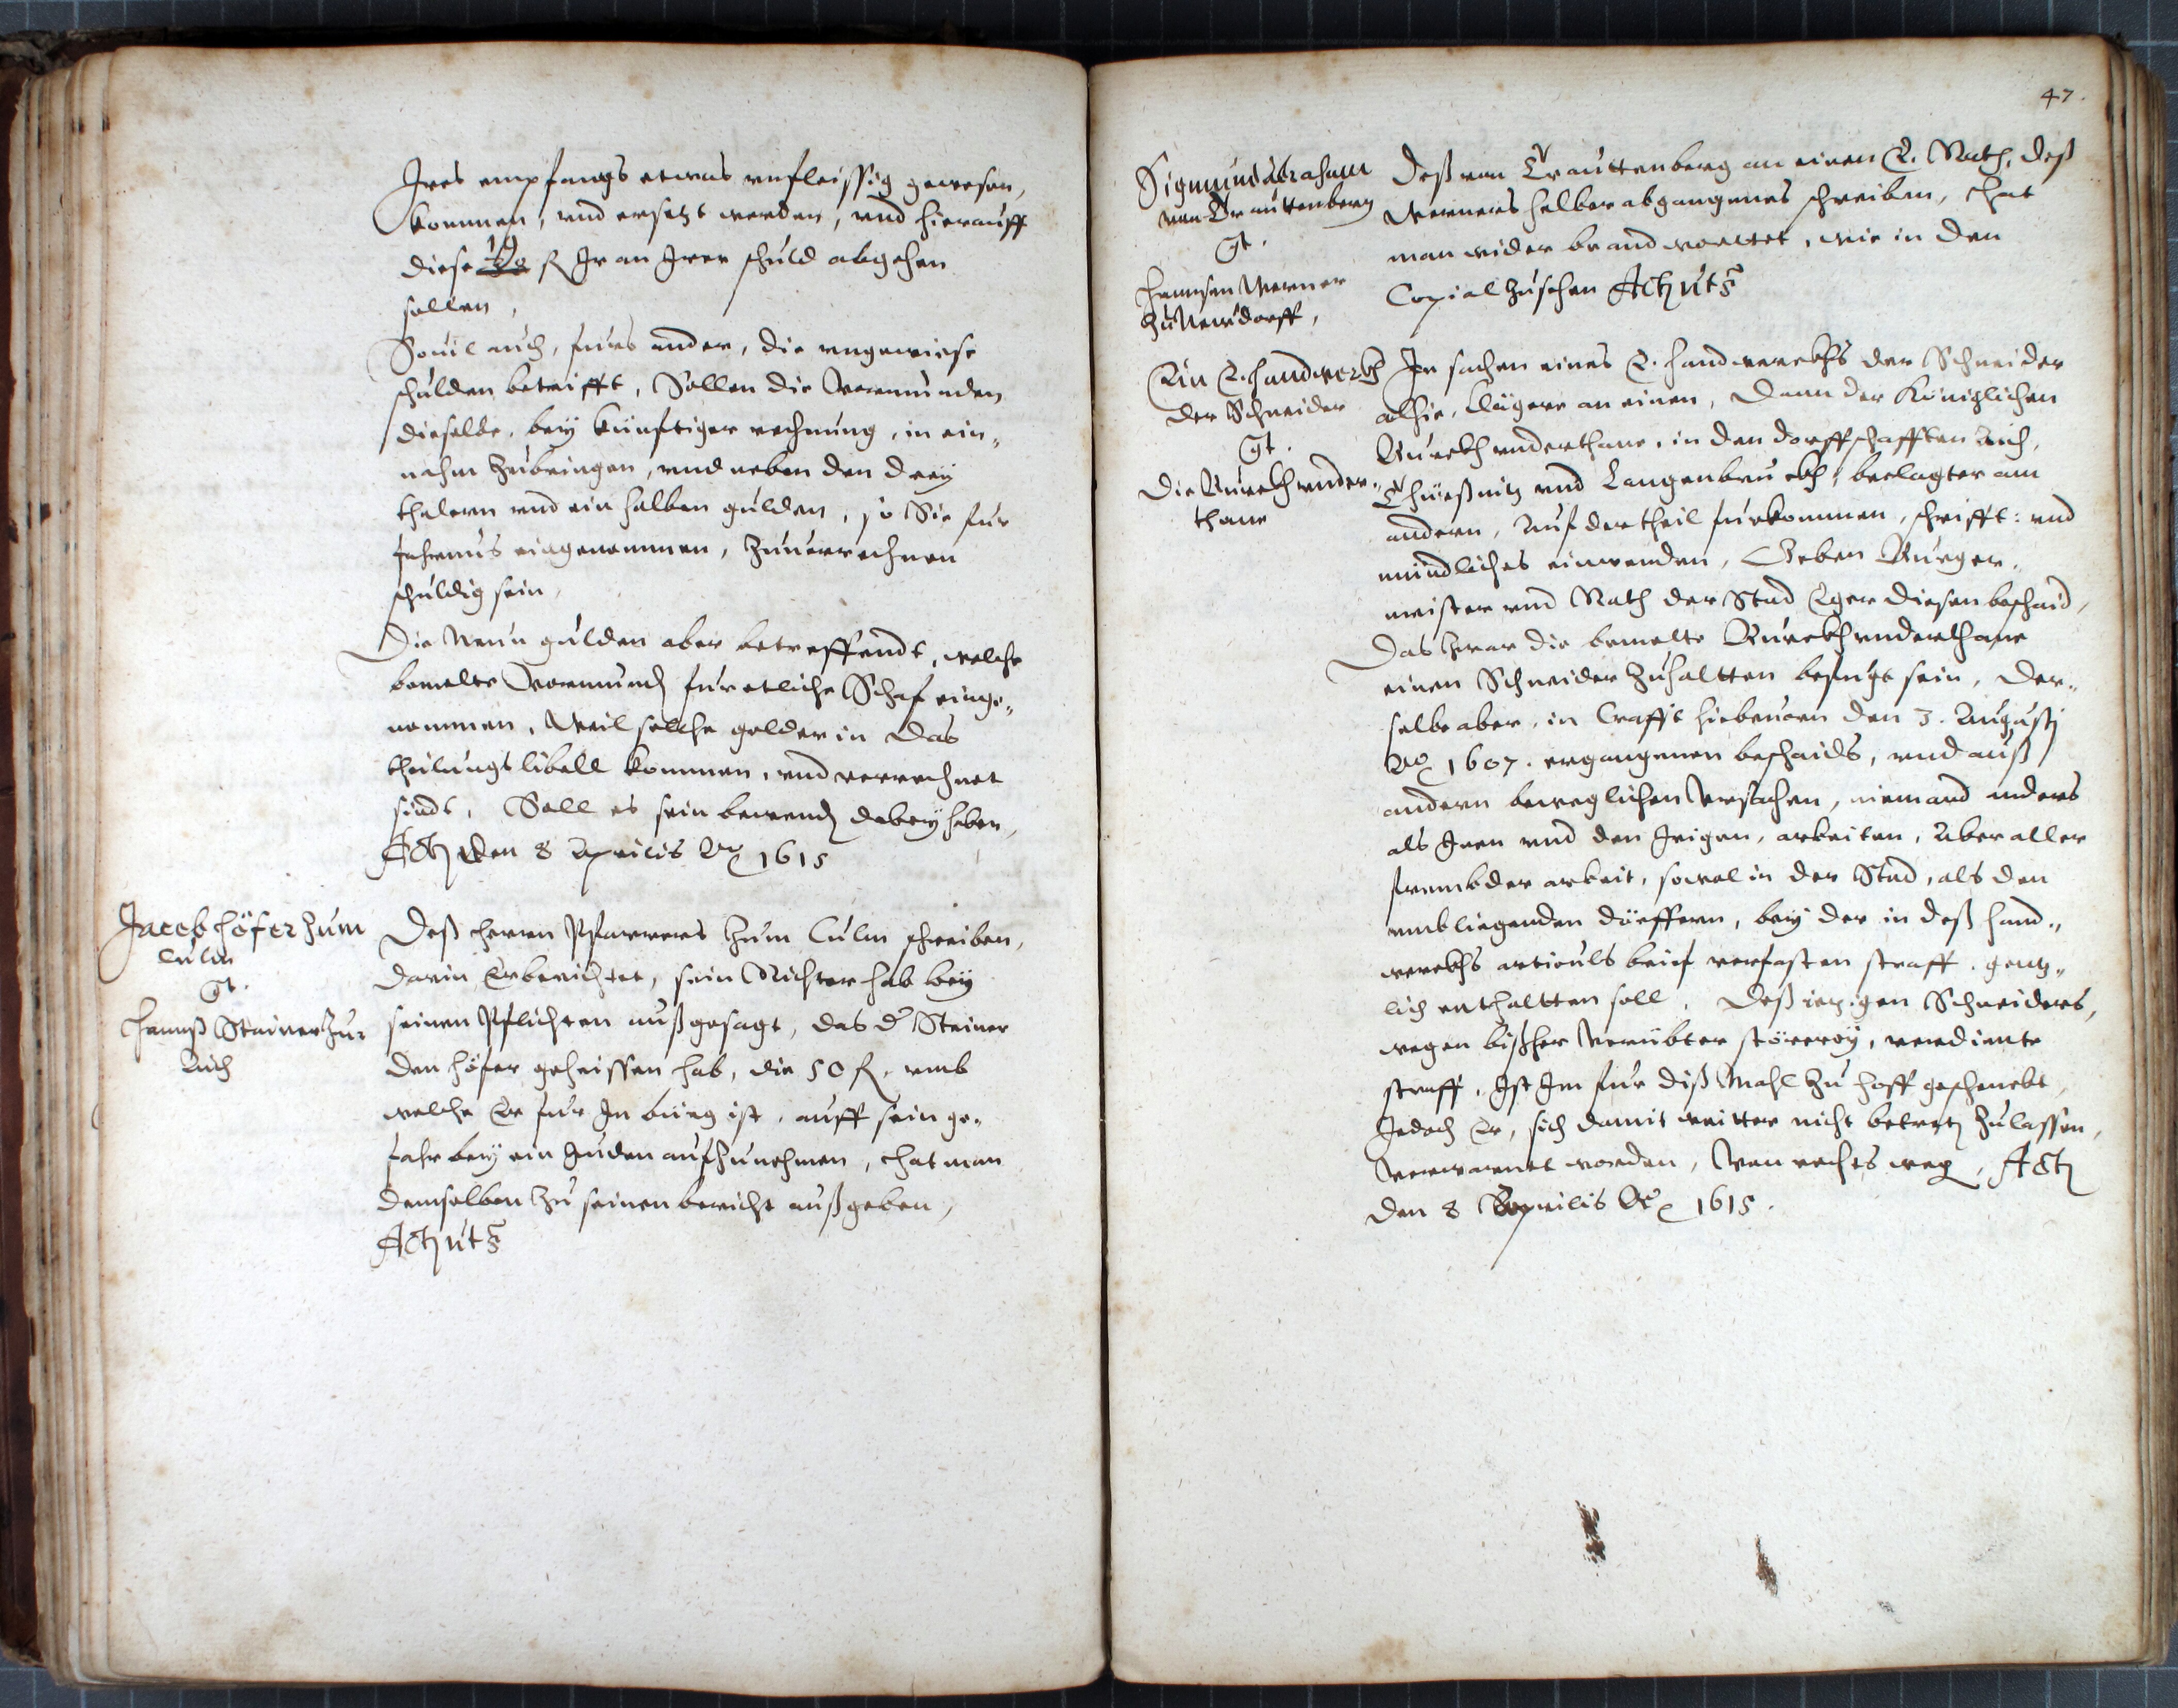 Ires empfangs etwas vnfleissig gewesen,
kommen, vnd ersetzt werden, vnd hierauff
diese 19 fl Ir an Irer schuld abgehen
sollen,
Souil auch, furs ander, die vngewiese
schulden betrifft, Sollen die Vormunden
dieselbe, bey künftiger rechnung, in ein„
nahm zubringen, vnd neben den drey
thalern vnd ein halben gulden, so Sie fur
fahrnus eingenommen, zuuerrechnen
schuldig sein,
Die Neun gulden aber betreffendt, welche
bemelte Vormund fur etliche Schaf einge„
nommen, Weil solche gelder in das
theilungs libell kommen, vnd verrechnet
sindt, Soll es sein bewend dabey haben,
Act den 8 Aprilis Ao 1615
Jacob Höfer zum
Culm
gt.
Hannß Steiner zur
Aich
Deß Herrn Pfarrers zum Culm schreiben,
darin Er berichtet, sein Richter hab bey
seinen Pflichten außgesagt, das d Steiner
den Höfer geheissen hab, die 50 fl, vmb
welche Er fur In bürg ist, auff sein ge„
fahr bey ein Juden aufzunehmen, Hat man
demselben zu seinen bericht außgeben,
Act ut s
47.
Sigmund Abraham
von Trauttenberg
gt.
Hannsen Werner
zu Newdorff,
Deß von Trauttenberg an einen E. Rath, deß
Werners halber abgangenes schreiben, Hat
man wider beandworttet, wie in den
Copial zusehen Act ut s
Ein E. Handwerch
der Schneider
gt.
Die Burckh vnder„
thane
In sachen eines E. Handwerckhs der Schneider
alhie, Clägere an einen, Dann der Königlichen
Burckh vnderthane, in den dorffschafften Aich,
vnd Langenbruckh, beclagter am
andern, Auf der theil furkommen, schrifft: vnd
mündliches einwenden, Geben Burger„
meister vnd Rath der Stad Eger diesen beschaid,
Das zwar die bemelte Burckh vnderthane
einen Schneider zuhaltten befugt sein, der„
selbe aber, in Crafft hiebeuorn den 3. Augusti
Ao 1607. ergangenen beschaids, vnd auß
andern beweglichen Vrsachen, niemand anders
als Inen vnd den Irigen, arbeiten, Aber aller
frembder arbeit, sowol in der Stad, als den
vmbliegenden dörffern, bey der in deß Hand„
werckhs articuls brief verfasten straff, gentz„
lich enthaltten soll, Deß ietzigen Schneiders,
wegen bißher Verübter störerey, verdiente
straff, Ist Im fur diß Mahl zu hoff geschenckt,
Jedoch Er, sich damit weitter nicht betret zulassen,
Verwarnet worden, Von rechts weg, Act
den 8 Aprilis Ao 1615.